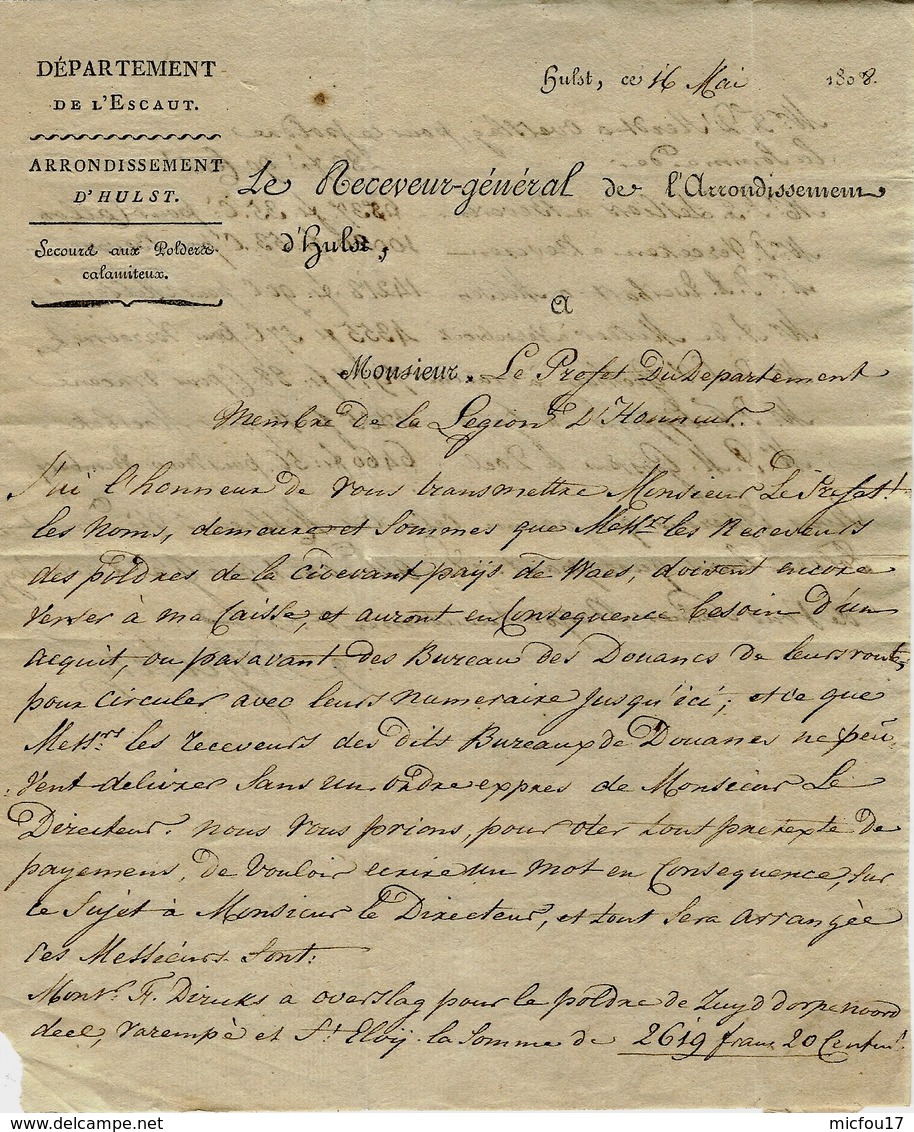 DÉPARTEMENT
DE L'ESCAUT.
ARRONDISSEMENT
D'HULST.
Secours aux Polders
calamiteux.
Hulst, ce 16 Mai 1808.
Le Receveur-général de l'Arrondissement
d'Hulst,
A
Monsieur, Le Prefet Du Departement
Membre de la Legion D'Honneur.
J'ai l'honneur de vous transmettre Monsieur Le Prefet!
les noms, demeure et sommes que Messrs les Receveurs
des poldres de la civevant pays de Waes, doivent encore
verser à ma Caisse, et auront en Consequence besoin d'un
acquit, ou pasavant des Bureau des Douanes de leurs route,
pour circuler avec leurs numeraire jusqu'ici; et ce que
Messrs les receveurs des dits Bureaux de Douanes ne peu-
-vent delivrer sans un ordre expres de Monsieur Le
Directeur. nous vous prions, pour oter tout pretexte de
payemens, de vouloir ecrire un mot en Consequence, sur
ce sujet à Monsieur le Directeur, et tout sera arrangée
ces Messieurs sont:
Monsr. F. Dircks à overslag pour le poldre de Zuyddorpe noord
deel, varempè et St Elöy la somme de 2619 frans 20 Centms.
delcampe.net
micfou17